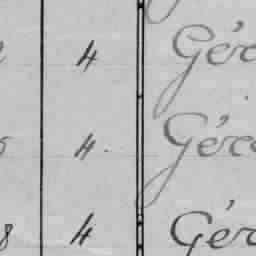 4 Gér
4. Gér
8 4 Gér